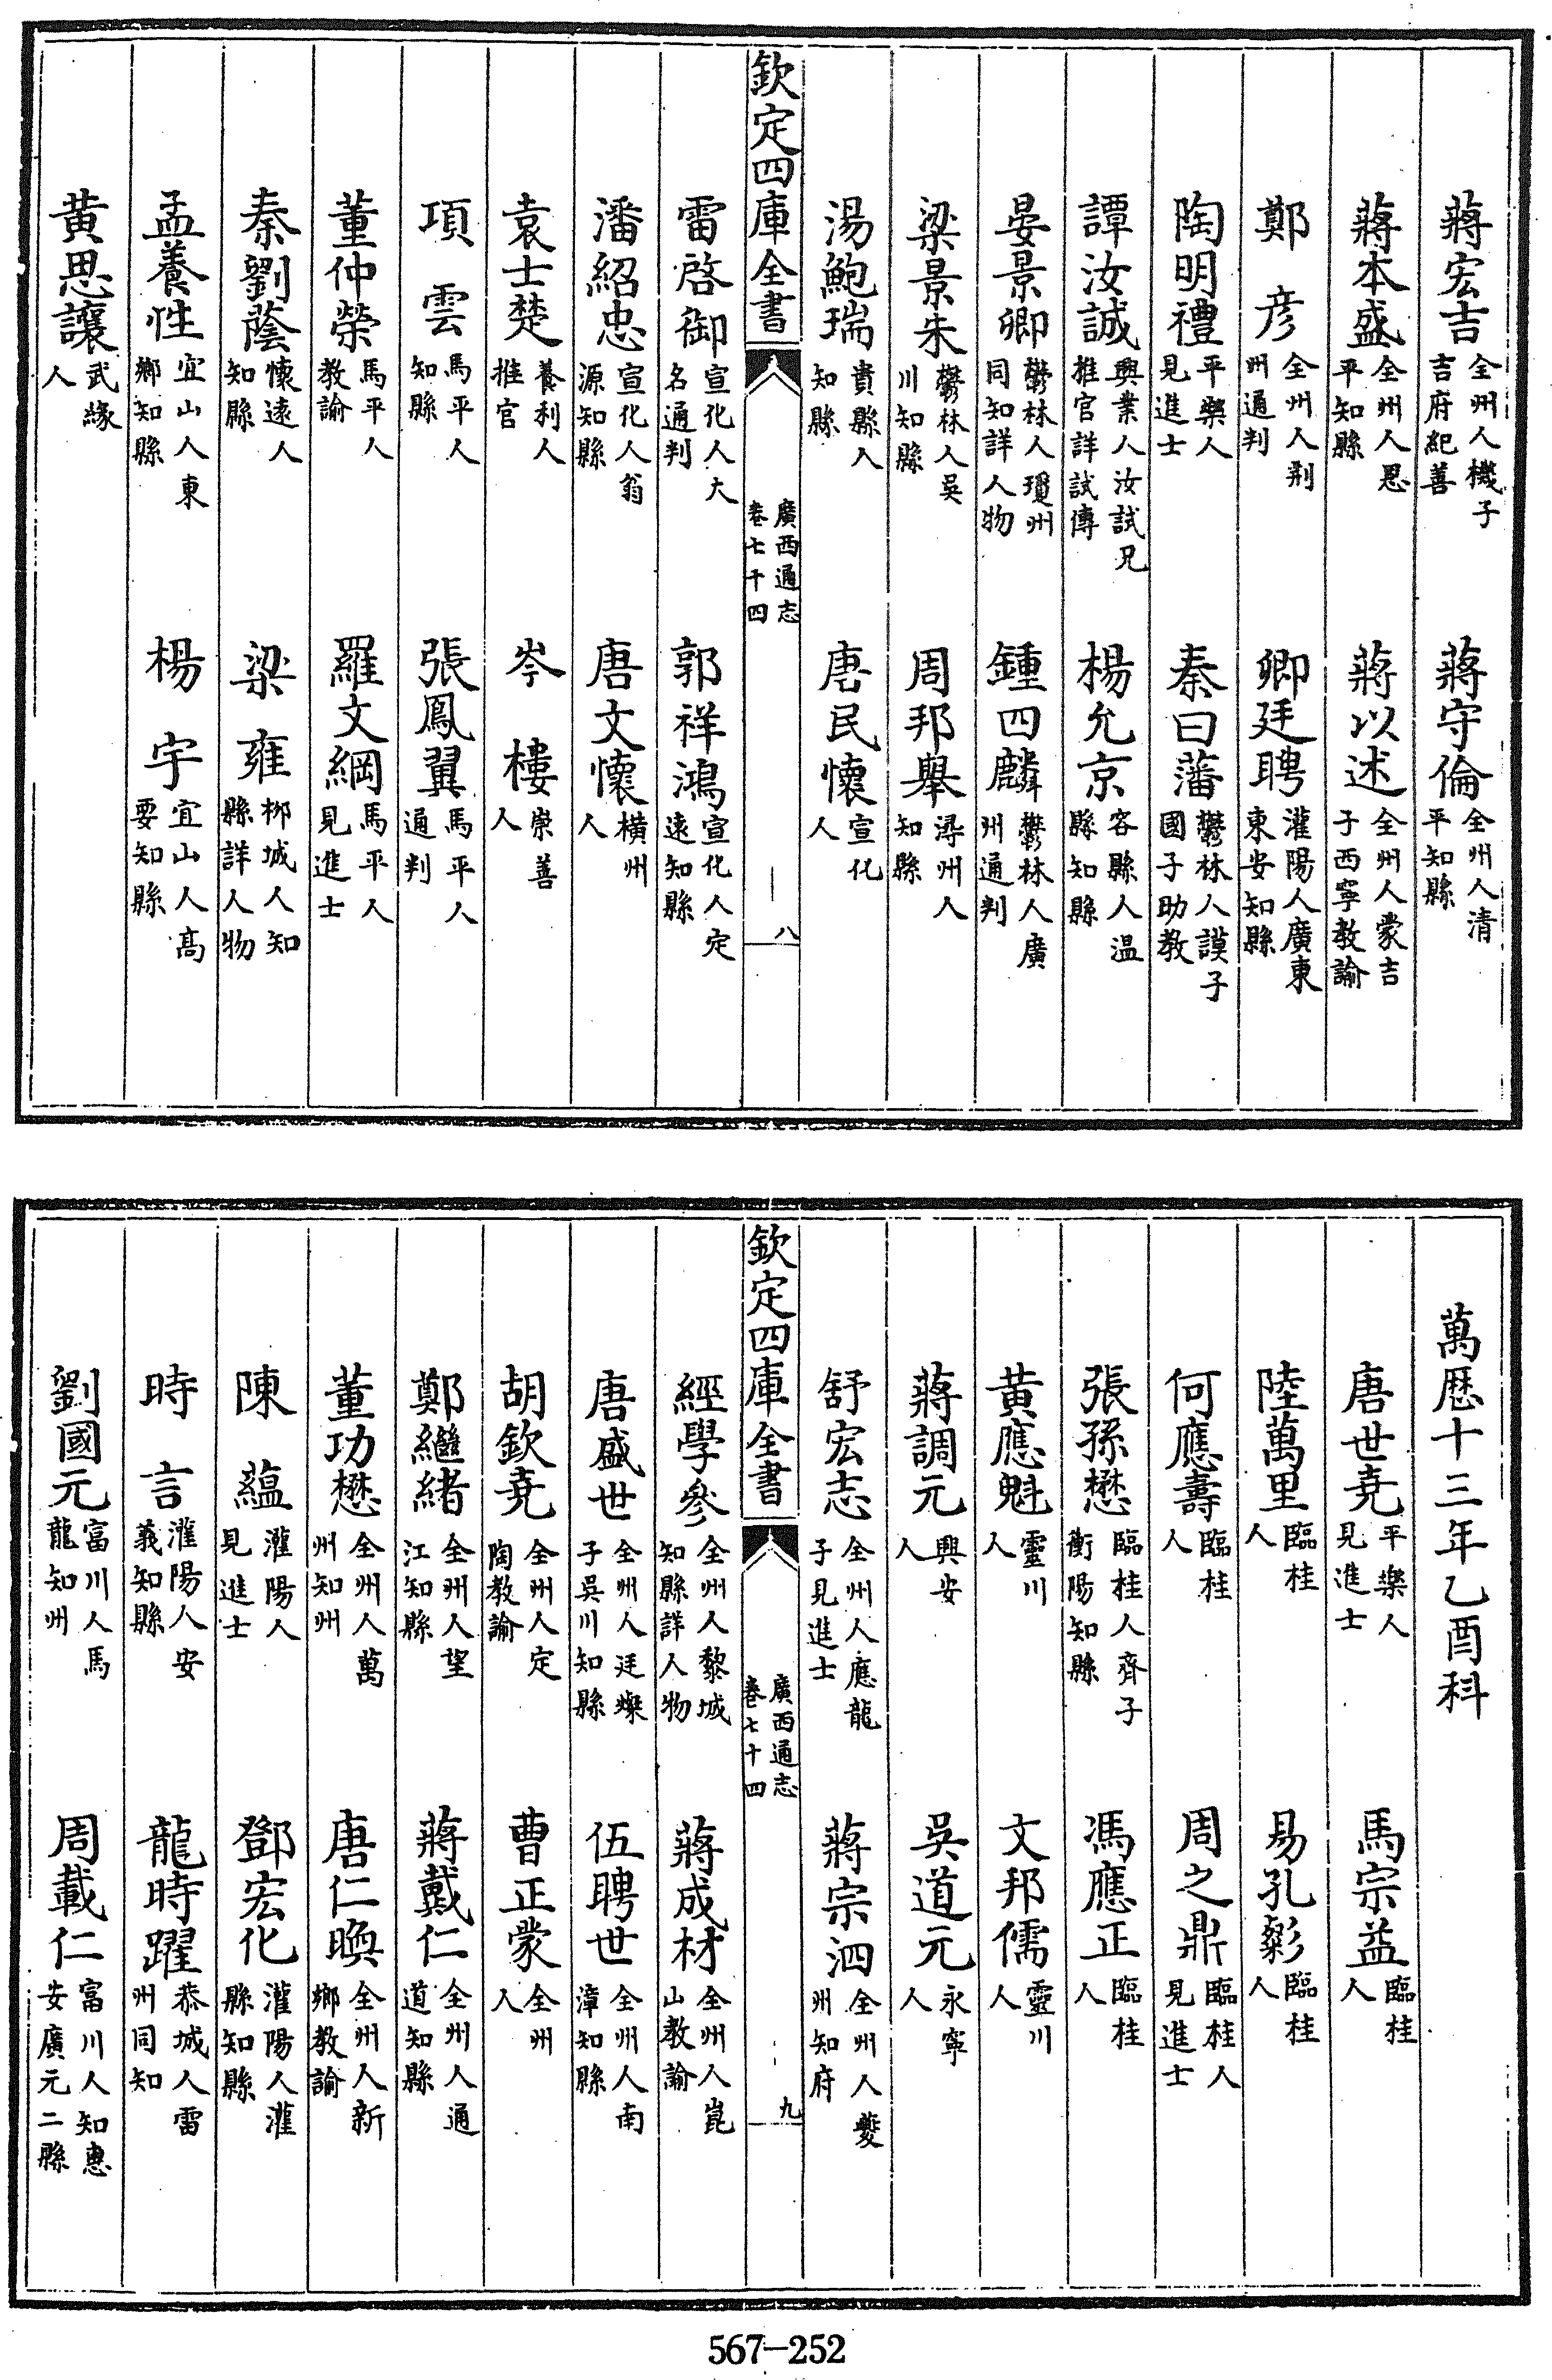 蔣宏吉全州人機子吉府紀善　蔣守倫全州人清平知縣
蔣本盛全州人恩平知縣　蔣以述全州人蒙吉子西寧教諭
鄭彦全州人荆州通判　卿廷聘灌陽人廣東東安知縣
陶明禮平樂人見進士　秦曰藩鬱林人謨子國子助教
譚汝誠興業人汝試兄推官詳試傳　楊允京容縣人温縣知縣
晏景卿鬱林人瓊州同知詳人物　鍾四麟鬱林人廣州通判
梁景朱鬱林人吳川知縣　周邦舉潯州人知縣
湯鮑瑞貴縣人知縣　唐民懷宣化人
欽定四庫全書　廣西通志卷七十四　八
雷啓御宣化人大名通判　郭祥鴻宣化人定遠知縣
潘紹忠宣化人翁源知縣　唐文懷橫州人
袁士楚養利人推官　岑樓崇善人
項雲馬平人知縣　張鳳翼馬平人通判
董仲榮馬平人教諭　羅文綱馬平人見進士
秦劉蔭懷遠人知縣　梁雍柳城人知縣詳人物
孟養性宜山人東鄉知縣　楊宇宜山人高要知縣
黄思讓武緣人
萬歷十三年乙酉科
唐世堯平樂人見進士　馬宗益臨桂人
陸萬里臨桂人　易孔彰臨桂人
何應壽臨桂人　周之鼎臨桂人見進士
張孫懋臨桂人齊子衡陽知縣　馮應正臨桂人
黄應魁靈川人　文邦儒靈川人
蔣調元興安人　吳道元永寧人
舒宏志全州人應龍子見進士　蔣宗泗全州人夔州知府
欽定四庫全書　廣西通志卷七十四　九
經學參全州人黎城知縣詳人物　蔣成材全州人崑山教諭
唐盛世全州人廷燦子吳川知縣　伍聘世全州人南漳知縣
胡欽堯全州人定陶教諭　曹正蒙全州人
鄭繼緒全州人望江知縣　蔣戴仁全州人通道知縣
董功懋全州人萬州知州　唐仁㬇全州人新鄉教諭
陳蘊灌陽人見進士　鄧宏化灌陽人灌縣知縣
時言灌陽人安義知縣　龍時躍恭城人雷州同知
劉國元富川人馬龍知州　周載仁富川人知惠安廣元二縣
567—252